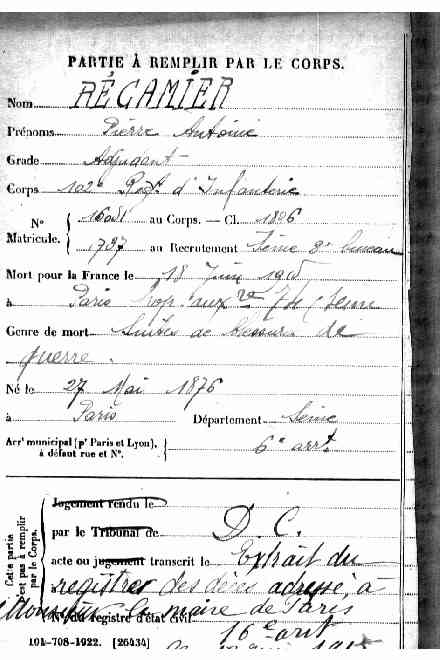 PARTIE À REMPLIR PAR LE CORPS.
Nom RÉCAMIER
Prénoms Pierre Antoine
Grade Adjudant
Corps 102e Regt d'Infanterie
No Matricule. au Corps. — Cl. 1896
1797 au Recrutement Seine 3e bureau
Mort pour la France le 18 Juin 1915
à Paris
Genre de mort Suites de blessures de
guerre.
Né le 27 Mai 1876
à Paris Département Seine
Arr' municipal (p' Paris et Lyon),
à défaut rue et N°.
6e arrt.
Cette partie
n'est pas à remplir
par le Corps.
Jugement rendu le
par le Tribunal de D. C.
acte ou jugement transcrit le Extrait du
à registres des décès adressé, à
la maire de Paris
N° du registre d'état civil 16e arrt
104-708-1922. [26434]